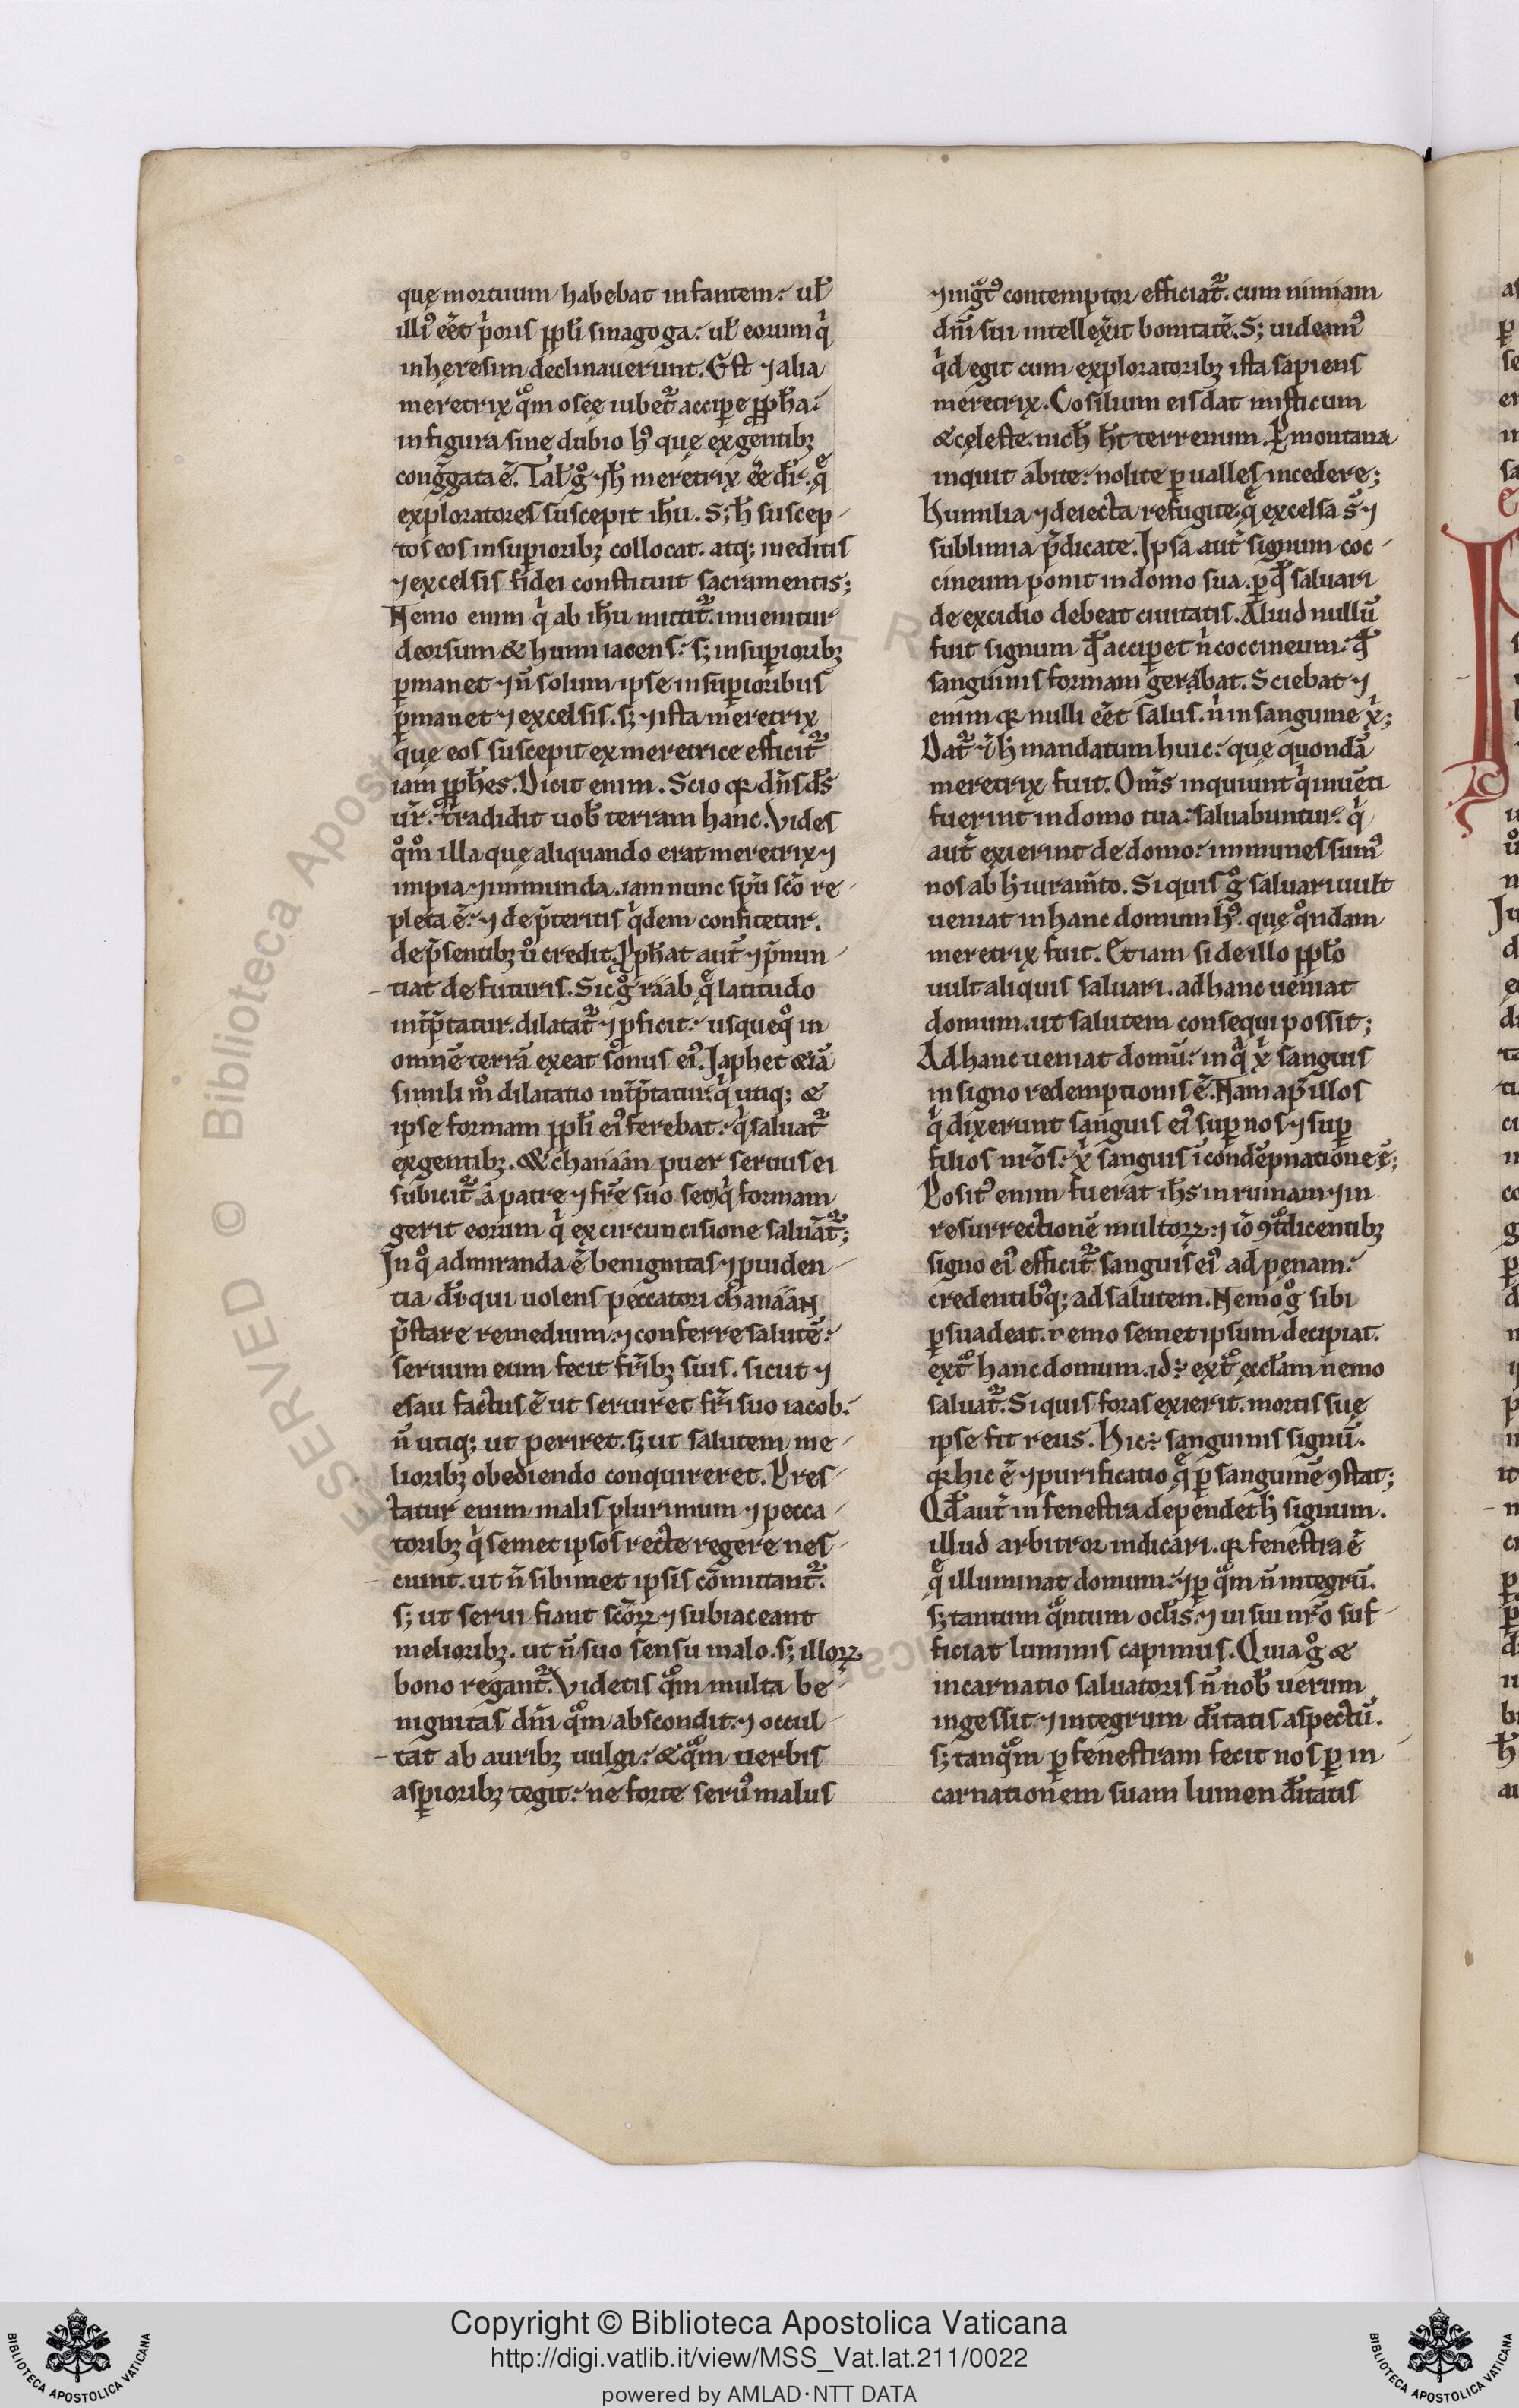 quę mortuum habebat infantem: ul̄
illi᷒ eēt p̍oris ppl̄i sinagoga: ul̄ eorum q̍
in hęresim declinauerunt. Est ⁊ alia
meretrix qͦm oseę iubet᷑ accipe ꝓph̄a:
in figura sine dubio hꝰ quę ex gentibꝫ
cong̃gata ē. Tal̄ gͦ ⁊ h̄ meretrix ēē dr̄. qͤ
exploratores suscepit ih̄u. S; h̄ suscep-
tos eos in supioribꝫ collocat. atq; in editis
⁊ excelsis fidei constituit sacramentis;
Nemo enim q̍ ab ih̄u mittit᷑. inuenitur
deorsum & humi iacens: s; in supioribꝫ
ꝑmanet ⁊ n̄ solum ipse in supioribus
ꝑmanet ⁊ excelsis. s; ⁊ ista meretrix
quę eos suscepit ex meretrice efficit᷑
iam ꝓph̄es. Dicit enim. Scio qꝛ dn̄s ds̄
ur̄. tradidit uob̄ terram hanc. Vides
qͦmͦ illa quę aliquando erat meretrix ⁊
impia ⁊ immunda. iam nunc spū scō re-
pleta ē: ⁊ de p̄teritis q̍dem confitetur.
de p̄sentibꝫ uͦ credit. ꝓph̄at aut̄ ⁊ p̄nun-
tiat de futuris. Sic gͦ ráab qͤ latitudo
int̄p̄tatur. dilatat᷑ ⁊ ꝓficit: usqueqͦ in
omnē terrā exeat sonus eiꝰ. Japhet &iā
simili mͦ dilatatio int̄p̄tatur. q̍ utiq; &
ipse formam ppl̄i eiꝰ ferebat: q̍ saluat᷑
ex gentibꝫ. & chanáan puer seruus ei
subicit᷑ á patre ⁊ fr̄e suo sem q̍ formam
gerit eorum q̍ ex circuncisione saluāt᷑;
In qͦ admiranda ē benignitas ⁊ ꝓuiden-
tia dī: qui uolens peccatori chanáan
p̄stare remedium: ⁊ conferre salutē:
seruum eum fecit fr̄ibꝫ suis. sicut ⁊
esau factus ē ut seruiret fr̄i suo iacob:
n̄ utiq; ut periret. s; ut salutem me-
lioribꝫ obediendo conquireret. Pres-
tatur enim malis plurimum ⁊ pecca-
toribꝫ q̍ semet ipsos recte regere nes-
ciunt. ut n̄ sibimet ipsis cōmittant᷑.
s; ut serui fiant scōꝝ ⁊ subiaceant
melioribꝫ. ut n̄ suo sensu malo. s; illoꝝ
bono regant᷑. Videtis qͦm multa be-
nignitas dn̄i qͦm abscondit: ⁊ occul-
tat ab auribꝫ uulgi: & qͦm uerbis
aspioribꝫ tegit: ne forte seruꝰ malus
⁊ ing̃tꝰ contemptor efficiat᷑. cum nimiam
dn̄i sui intellex̍it bonitatē. S; uideamꝰ
q̍d egit cum exploratoribꝫ ista sapiens
meretrix. Cosilium eis dat misticum
& cęleste. nich̄ h̄t terrenum. Ꝑ montana
inquit abite: nolite ꝑ ualles incedere;
Humilia ⁊ deiecta refugite. qͤ excelsa s̄ ⁊
sublimia p̄dicate. Ipsa aut̄ signum coc-
cineum ponit in domo sua. ꝑ qd̄ saluari
de excidio debeat ciuitatis. Aliud nullū
fuit signum qd̄ acciperet n̍ coccineum: qd̄
sanguinis formam gerabat. Sciebat ⁊
enim qꝛ nulli eēt salus. n̍ in sanguine x̍;
Dat᷑ ⁊ h̄ mandatum huic: quę quondā
meretrix fuit. Om̄s inquiunt q̍ inuēti
fuerint in domo tua: saluabuntur. q̍
aut̄ exierint de domo: immunes sumꝰ
nos ab h̄ iuram̄to. Siquis gͦ saluari uult
ueniat in hanc domum hꝰ. quę qͦndam
meretrix fuit. Etiam si de illo ppl̄o
uult aliquis saluari. ad hanc ueniat
domum. ut salutem consequi possit;
Ad hanc ueniat domū: in qᵃ x̍ sanguis
in signo redemptionis ē. Nam ap̄ illos
q̍ dixerunt sanguis eiꝰ suꝑ nos ⁊ suꝑ
filios nr̄os: x̍ sanguis ī condēpnatione ē;
Positꝰ enim fuerat ih̄s in ruinam ⁊ in
resurrectionē multoꝝ. ⁊ iō ꝯtᵃdicentibꝫ
signo eiꝰ efficit᷑ sanguis eiꝰ ad pęnam:
credentibꝰq; ad salutem. Nemo gͦ sibi
ꝑsuadeat. nemo semet ipsum decipiat.
ext̄ᵃ hanc domum. id: ext̄ᵃ eccl̄am nemo
saluat᷑. Siquis foras exierit. mortis suę
ipse fit reus. Hic: sanguinis signū.
qꝛ hic ē ⁊ purificatio qͤ ꝑ sanguinē ꝯstat;
Qd̄ aut̄ in fenestra dependet h̄ signum.
illud arbitror indicari. qꝛ fenestra ē
qͤ illuminat domum: ⁊ ꝑ quᵃm n̄ integrū.
s; tantum qᵃntum ocl̄is: ⁊ uisui nr̄o suf-
ficiat luminis capimus. Quia gͦ &
incarnatio saluatoris n̄ nob̄ uerum
ingessit ⁊ integrum dītatis aspectū.
s; tanqᵃm ꝑ fenestram fecit nos ꝑ in-
carnationem suam lumen dītatis
Copyright © Biblioteca Apostolica Vaticana
http://digi.vatlib.it/view/MSS_Vat.lat.211/0022
powered by AMLAD·NTT DATA